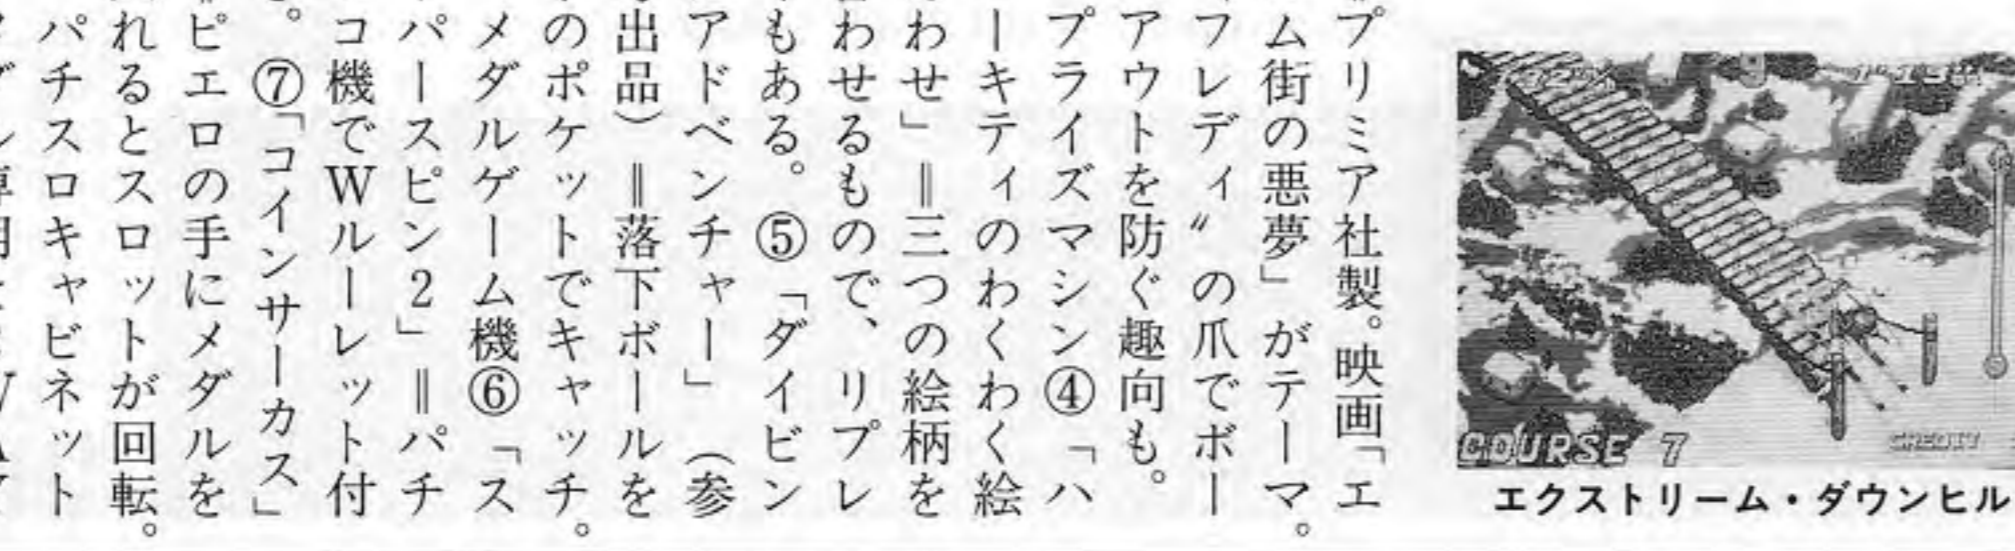 プリミア社製。映画「エ
ム街の悪夢」がテーマ。
フレディ〟の爪でボー
アウトを防ぐ趣向も。
プライズマシン④「ハ
ーキティのわくわく絵
わせ」＝三つの絵柄を
わせるもので、リプレ
もある。⑤「ダイビン
アドベンチャー」（参
出品）＝落下ボールを
のポケットでキャッチ。
メダルゲーム機⑥「ス
パースピン2」＝パチ
コ機でWルーレット付
。⑦「コインサーカス」
ピエロの手にメダルを
れるとスロットが回転。
パチスロキャビネット
COURSE 7
CREDIT
エクストリーム・ダウンヒル